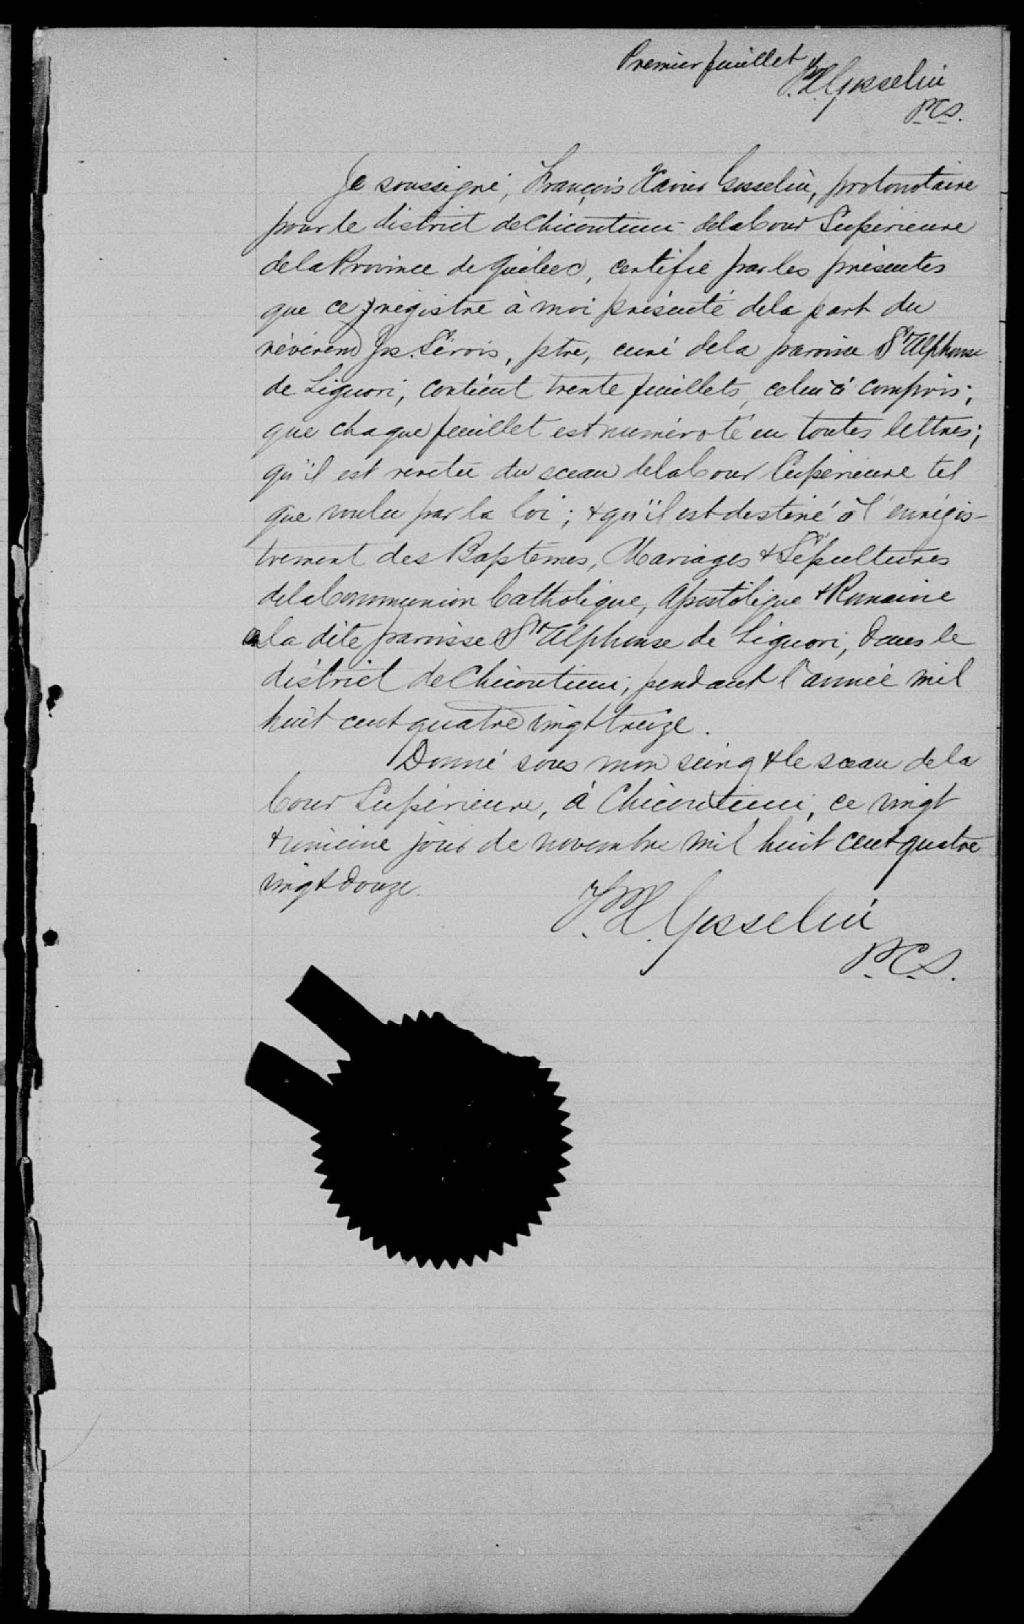 Premier feuillet
F. X. Gosselin
P.C.S.
Je soussigné, François Xavier Gosselin, protonotaire
pour le district de Chicoutimi de la Cour Supérieure
de la Province de Québec, certifie par les présentes
que ce registre à moi présenté de la part du
révérend Jos. Sirois, ptre, curé de la paroisse St Alphonse
de Liguori, contient trente feuillets, celui ci compris;
que chaque feuillet est numéroté en toutes lettres;
qu'il est revetu du sceau de la Cour Supérieure tel
que voulu par la loi; & qu'il est destiné à l'enrégis-
trement des Baptemes, Mariages & Sépultures
de la Communion Catholique, Apostolique & Romaine
a la dite paroisse St Alphonse de Liguori, dans le
district de Chicoutimi, pendant l'année mil
huit cent quatre vingt treize.
Donné sous mon seing & le sceau de la
Cour Supérieure, à Chicoutimi, ce vingt
& unieme jour de novembre mil huit cent quatre
vingt douze.
F. X. Gosselin
P.C.S.